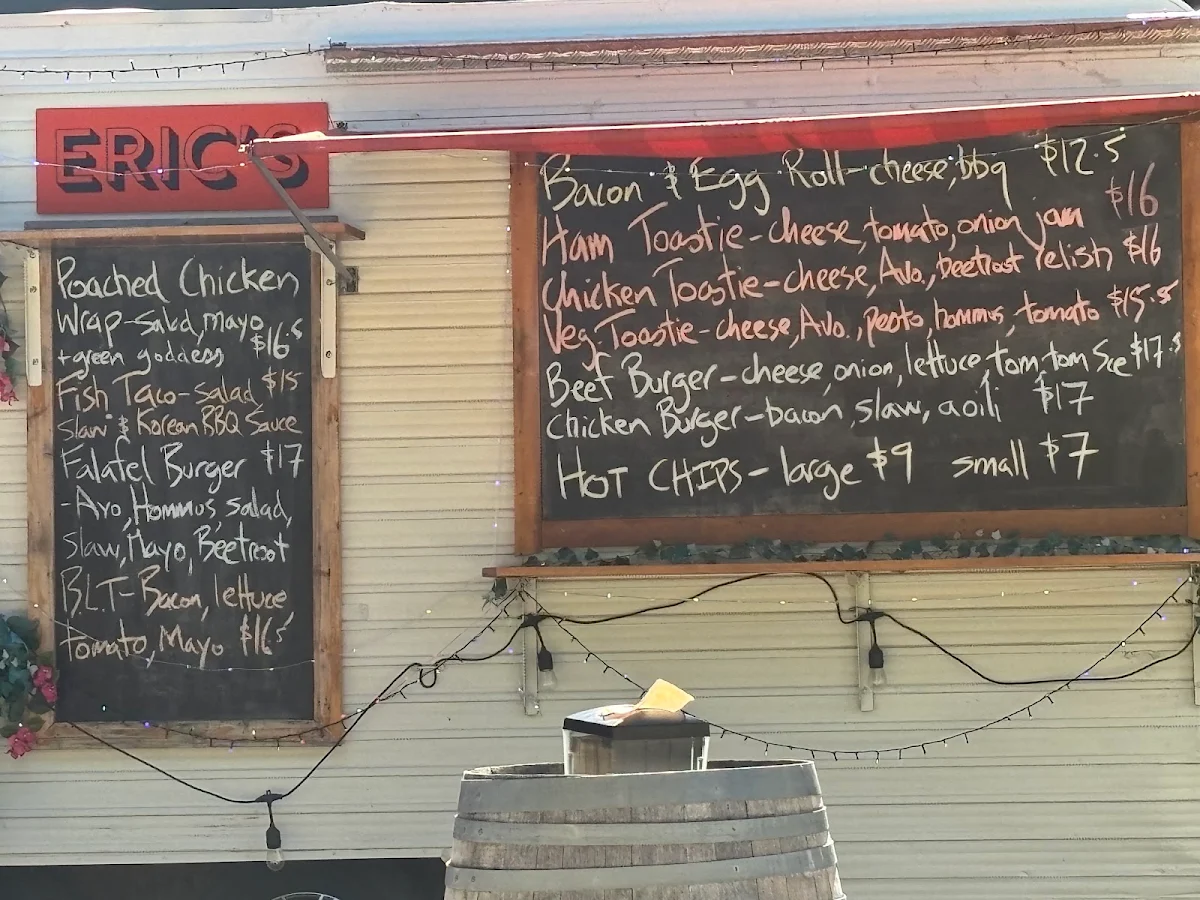 ERIC'S
Poached Chicken
Wrap-salad, mayo
+green goddess $16.5
Fish Taco-salad $15
slaw & Korean BBQ Sauce
Falafel Burger $17
-Avo, Hommus, salad,
slaw, Mayo, Beetroot
B.L.T-Bacon, lettuce
tomato, Mayo $16.5
Bacon & Egg Roll-cheese, bbq $12.5
Ham Toastie-cheese, tomato, onion jam $16
Chicken Toastie-cheese, Avo., beetroot relish $16
Veg. Toastie-cheese, Avo., pesto, hommus, tomato $15.5
Beef Burger-cheese, onion, lettuce, tom, tom Sce $17.5
Chicken Burger-bacon, slaw, aoili $17
HOT CHIPS- large $9 small $7